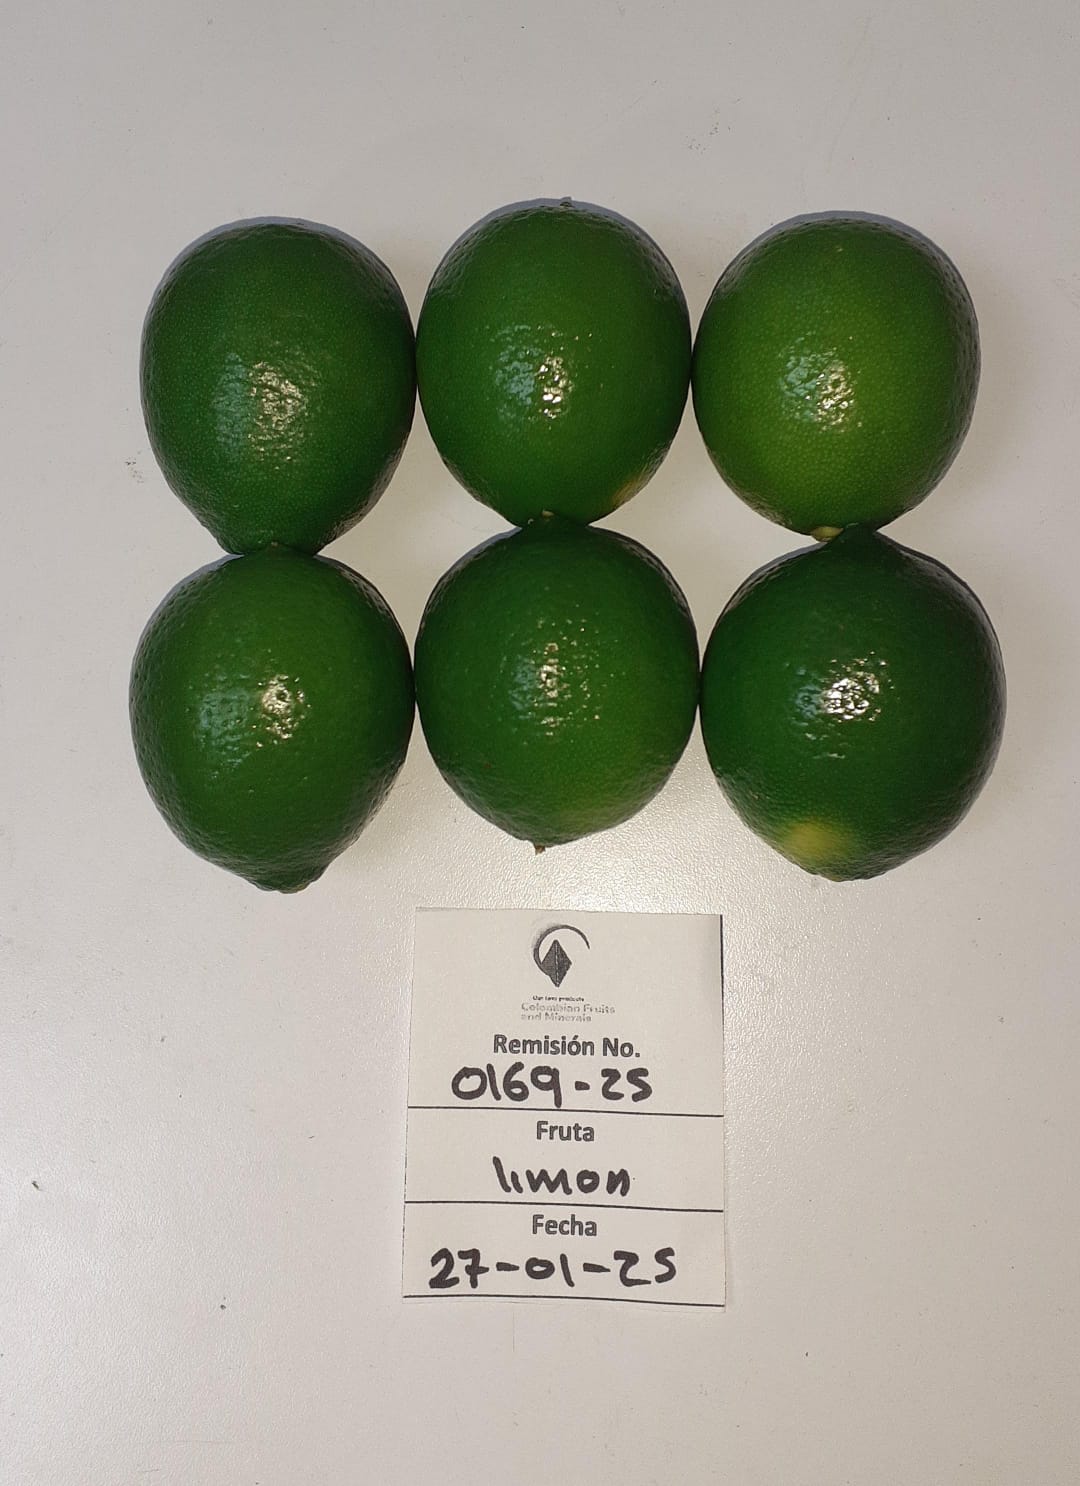 Our best products
Colombian Fruits
and Minerals
Remisión No.
0169-25
Fruta
limon
Fecha
27-01-25